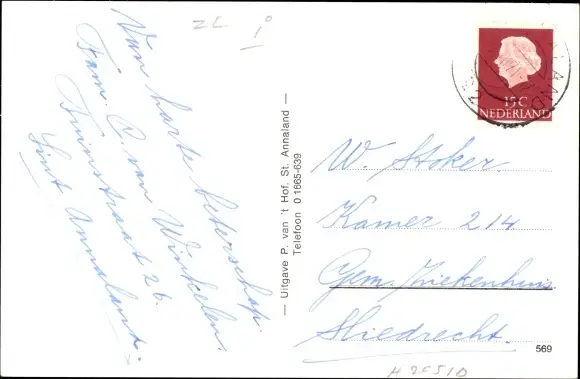 ZL i
Van harte beterschap.
Fam. P. van Winkelen.
Tuinstraat 26.
Sint Annaland.
— Uitgave P. van 't Hof, St. Annaland —
Telefoon 0 1665-639
15C
NEDERLAND
W. Stoker.
Kamer 214
Gem. Ziekenhuis.
Sliedrecht.
569
H 20510